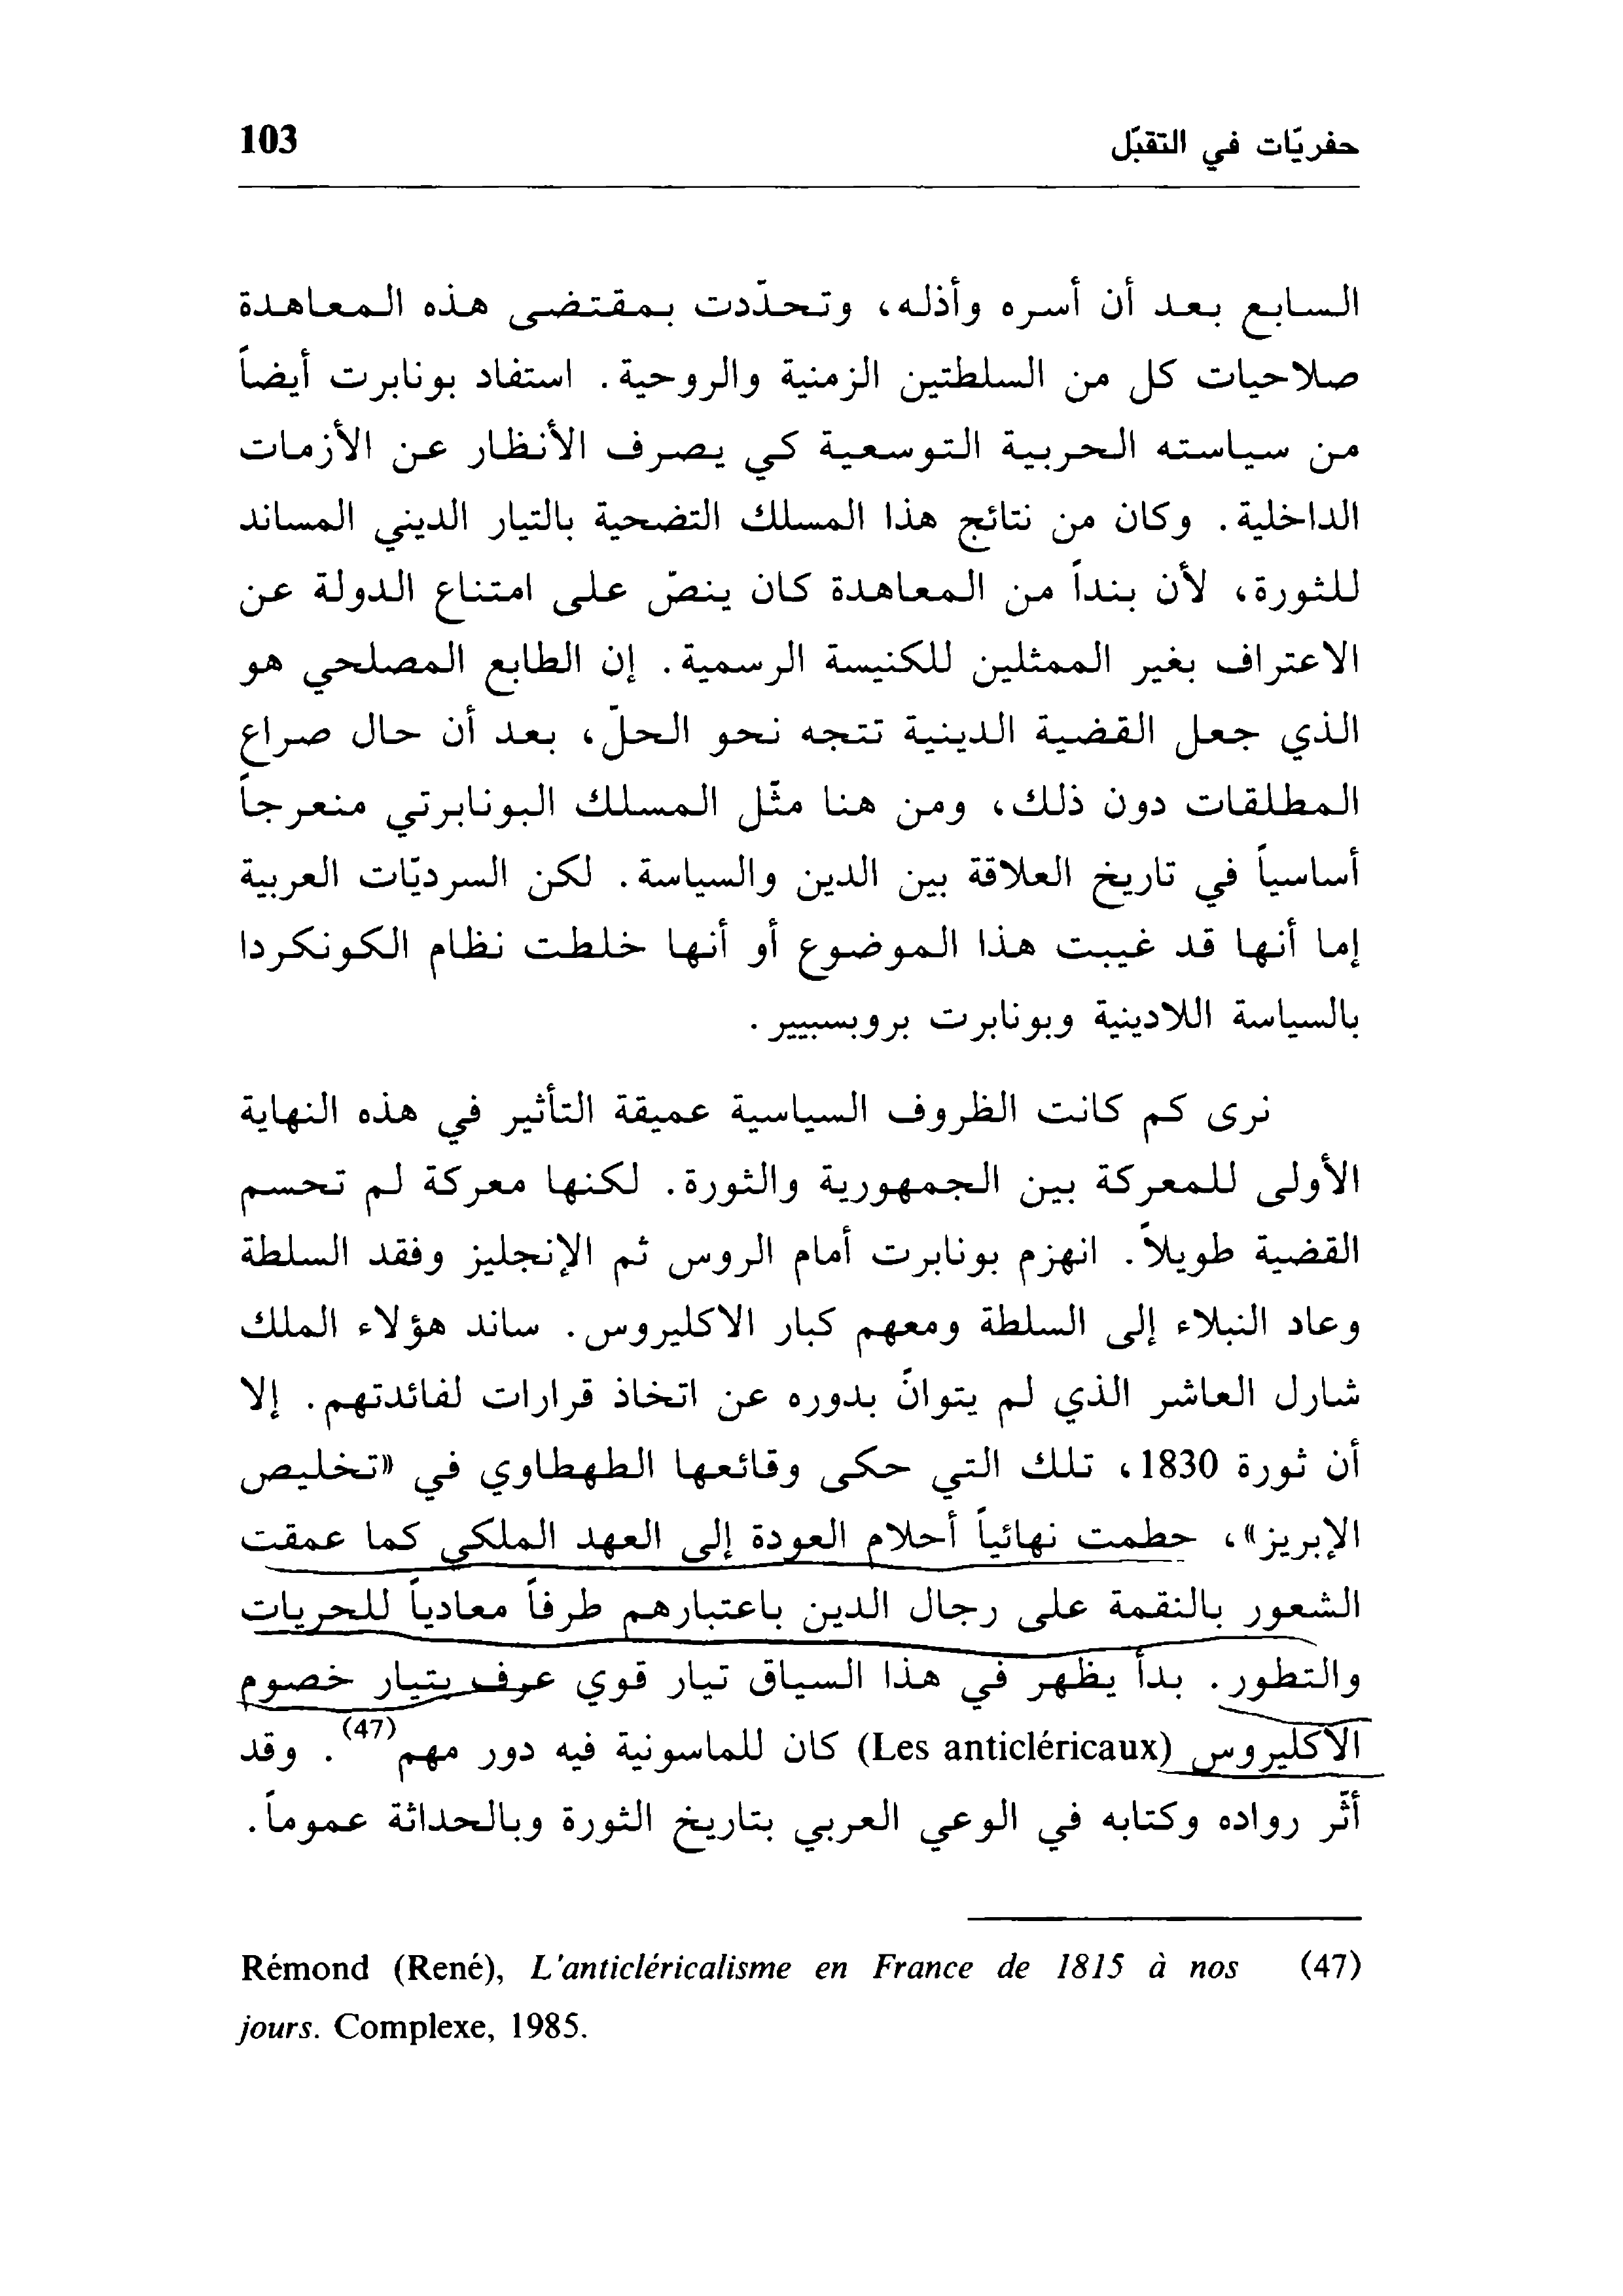 حفريّات في التقبّل
103
السابع بعد أن أسره وأذله، وتحدّدت بمقتضى هذه المعاهدة
صلاحيات كل من السلطتين الزمنية والروحية. استفاد بونابرت أيضاً
من سياسته الحربية التوسعية كي يصرف الأنظار عن الأزمات
الداخلية. وكان من نتائج هذا المسلك التضحية بالتيار الديني المساند
للثورة، لأن بنداً من المعاهدة كان ينصّ على امتناع الدولة عن
الاعتراف بغير الممثلين للكنيسة الرسمية. إن الطابع المصلحي هو
الذي جعل القضية الدينية تتجه نحو الحلّ، بعد أن حال صراع
المطلقات دون ذلك، ومن هنا مثّل المسلك البونابرتي منعرجاً
أساسياً في تاريخ العلاقة بين الدين والسياسة. لكن السرديّات العربية
إما أنها قد غيبت هذا الموضوع أو أنها خلطت نظام الكونكردا
بالسياسة اللادينية وبونابرت بروبسبيير.
نرى كم كانت الظروف السياسية عميقة التأثير في هذه النهاية
الأولى للمعركة بين الجمهورية والثورة. لكنها معركة لم تحسم
القضية طويلاً. انهزم بونابرت أمام الروس ثم الإنجليز وفقد السلطة
وعاد النبلاء إلى السلطة ومعهم كبار الاكليروس. ساند هؤلاء الملك
شارل العاشر الذي لم يتوانَ بدوره عن اتخاذ قرارات لفائدتهم. إلا
أن ثورة 1830، تلك التي حكى وقائعها الطهطاوي في «تخليص
الإبريز»، حطمت نهائياً أحلام العودة إلى العهد الملكي كما عمقت
الشعور بالنقمة على رجال الدين باعتبارهم طرفاً معادياً للحريات
والتطور. بدأ يظهر في هذا السياق تيار قوي عرف بتيار خصوم
الاكليروس (Les anticléricaux) كان للماسونية فيه دور مهم(47). وقد
أثّر رواده وكتابه في الوعي العربي بتاريخ الثورة وبالحداثة عموماً.
(47) Rémond (René), L'anticléricalisme en France de 1815 à nos
jours. Complexe, 1985.